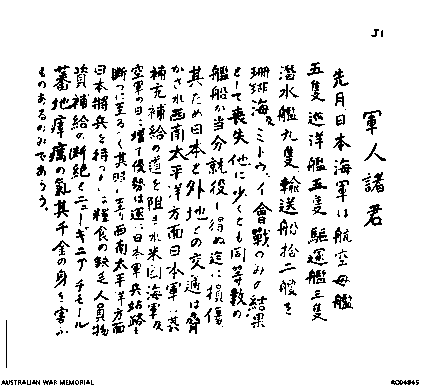 J1
軍人諸君
先月日本海軍は航空母艦
五隻巡洋艦五隻駆逐艦三隻
潜水艦九隻輸送船拾二艘を
珊瑚海及ミドウェイ會戰のみの結果
として喪失他に少くとも同等數の
艦船か当分就役し得ぬ迄に損傷
其ため日本と外地との交通は脅
かされ西南太平洋方面日本軍は其
補充補給の道を阻まれ米国海軍及
空軍の日増す優勢は遂に日本軍兵站路を
断つに至るべく其暁に至り西南太平洋方面
日本將兵を待つ
は糧食の缺乏人員物
資補給の断絶とニューギニア チモール
蕃地瘴癘の氣其千金の身を害ふ
ものあるのみであらう。
AUSTRALIAN WAR MEMORIAL
RC04845